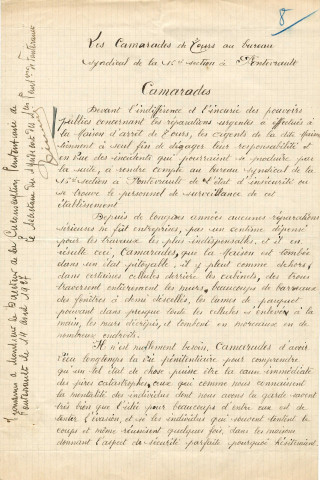 8
Les Camarades de Tours au bureau
Syndical de la 15e section à Fontevrault
Camarades
Devant l'indifférence et l'incurie des pouvoirs
publics concernant les réparations urgentes à effectuer à
la Maison d'arrêt de Tours, les agents de la dite Maison
tiennent à seul fin de dégager leur responsabilité et
en vue des incidents que pourraient se produire par
la suite, à rendre compte au bureau syndical de la
15e section à Fontevrault de l'état d'insécurité où
se trouve le personnel de surveillance de cet
établissement
Depuis de longues années aucunes réparations
sérieuses ne fût entreprises, pas un centime dépensé
pour les travaux les plus indispensables, et il en
résulte ceci, Camarades, que la Maison est tombée
dans un état pitoyable; il y pleut comme dehors,
dans certaines cellules derrière les cabinets, des trous
traversent entièrement les murs, beaucoup de barreaux
des fenêtres à demi descellés, les lames de parquet
pouvant dans presque toute les cellules s'enlever à la
main, les murs décrépis, et tombent en morceaux en de
nombreux endroits.
Il n'est nullement besoin, Camarades d'avoir
vécu longtemps la vie pénitentiaire pour comprendre
qu'un tel état de chose puisse être la cause immédiate
des pires catastrophes, ceux qui comme nous connaissent
la mentalité des individus dont nous avons la garde savent
très bien que l'idée pour beaucoups d'entre eux est de
tenter l'évasion, et si les individus qui souvent tentent le
coups et même réussissent quelques fois, dans les maisons
donnant l'aspect de sécurité parfaite, pourquoi hésiteraient
Transmis à Monsieur le Directeur de la Circonscription Pénitentiaire de
Fontevrault le 14 avril 1927
le Secrétaire du Syndicat